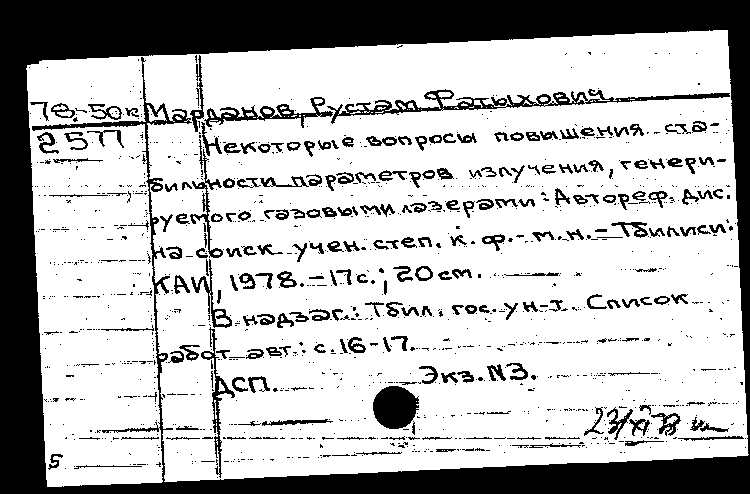 78-50к Марданов, Рустам Фатыхович.
2577 Некоторые вопросы повышения ста-
бильности параметров излучения, генери-
руемого газовыми лазерами: Автореф. дис.
на соиск учен. степ. к. ф.-м. н. - Тбилиси:
КАИ, 1978. - 17 с.; 20 см.
В надзаг.: Тбил. гос. ун-т. Список
работ авт.: с. 16-17.
ДСП. Экз. N3.
23/XI 78
5